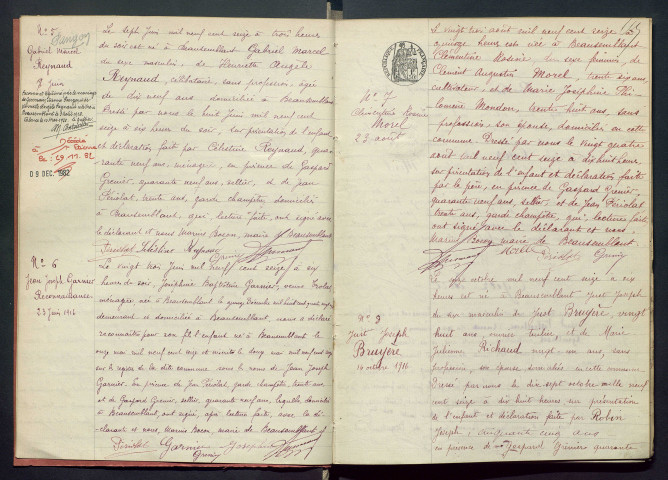 N° 5
Gabriel Marcel
Reynaud
7 Juin
Décédé
à
Le: 29.11.82
09 DEC. 1982
Le sept Juin mil neuf cent seize à trois heures
du soir est né à Beausemblant Gabriel Marcel
du sexe masculin, de Henriette Angèle
Reynaud, célibataire, sans profession, agée
de dix neuf ans, domiciliée à Beausemblant
Dressé par nous le huit Juin mil neuf cent
seize à six heures du soir, sur présentation de l'enfant
et déclaration faite par Célestine Reynaud, qua-
rante neuf ans, ménagère, en présence de Gaspard
Grenier, quarante neuf ans, sellier, et de Jean
Fériolat, trente ans, garde champêtre, domiciliés
à Beausemblant, qui, lecture faite, ont signé avec
le déclarant et nous Marius Bocon, maire de Beausemblant
Fériolat Célestine Reynaud
Grenier
N° 6
Jean Joseph Garnier
Reconnaissance
23 Juin 1916
Le vingt trois Juin mil neuf cent seize à six
heures du soir, Joséphine Baptistine Garnier,
ménagère, née à Beausemblant le
demeurant et domiciliée à Beausemblant, nous a déclaré
reconnaître pour son fils l'enfant né à Beausemblant le
onze mai mil neuf cent seize et inscrit le douze mai
sur le registre de la dite commune sous le nom de Jean Joseph
Garnier. En présence de Jean Fériolat, garde champêtre, trente ans,
et de Gaspard Grenier, sellier, quarante neuf ans, lesquels domiciliés
à Beausemblant ont signé, après lecture faite, avec la dé-
clarante et nous, Marius Bocon, maire de Beausemblant
Fériolat Garnier Joséphine
Grenier
N° 7
Clémentine Rosine
Morel
23 août
Le vingt trois août mil neuf cent seize à
quinze heures est née à Beausemblant
Clémentine Rosine, du sexe féminin, de
Clément Augustin Morel, trente six ans,
cultivateur, et de Marie Joséphine Phi-
lomène Mondon, trente huit ans, sans
profession, son épouse, domiciliés en cette
commune. Dressé par nous le vingt quatre
août mil neuf cent seize à dix huit heures,
sur présentation de l'enfant et déclaration faite
par le père, en présence de Gaspard Grenier,
quarante neuf ans, sellier, et de Jean Fériolat
trente ans, garde champêtre, qui, lecture faite,
ont signé avec le déclarant et nous,
Marius Bocon, maire de Beausemblant
Morel
Fériolat Grenier
Just Joseph
Bruyère
16 octobre 1916
octobre mil neuf cent seize à
heures est né à Beausemblant Just Joseph
du sexe masculin de Just Bruyère, vingt
huit ans, et de Marie
Julienne Richaud vingt un ans, sans
profession, son épouse domiciliés en cette commune
Dressé par nous le dix sept octobre mille neuf
cent seize à dix huit heures sur présentation
de l'enfant et déclaration faite par Robin
Joseph, cinquante cinq ans
en présence de Gaspard Grenier quarante